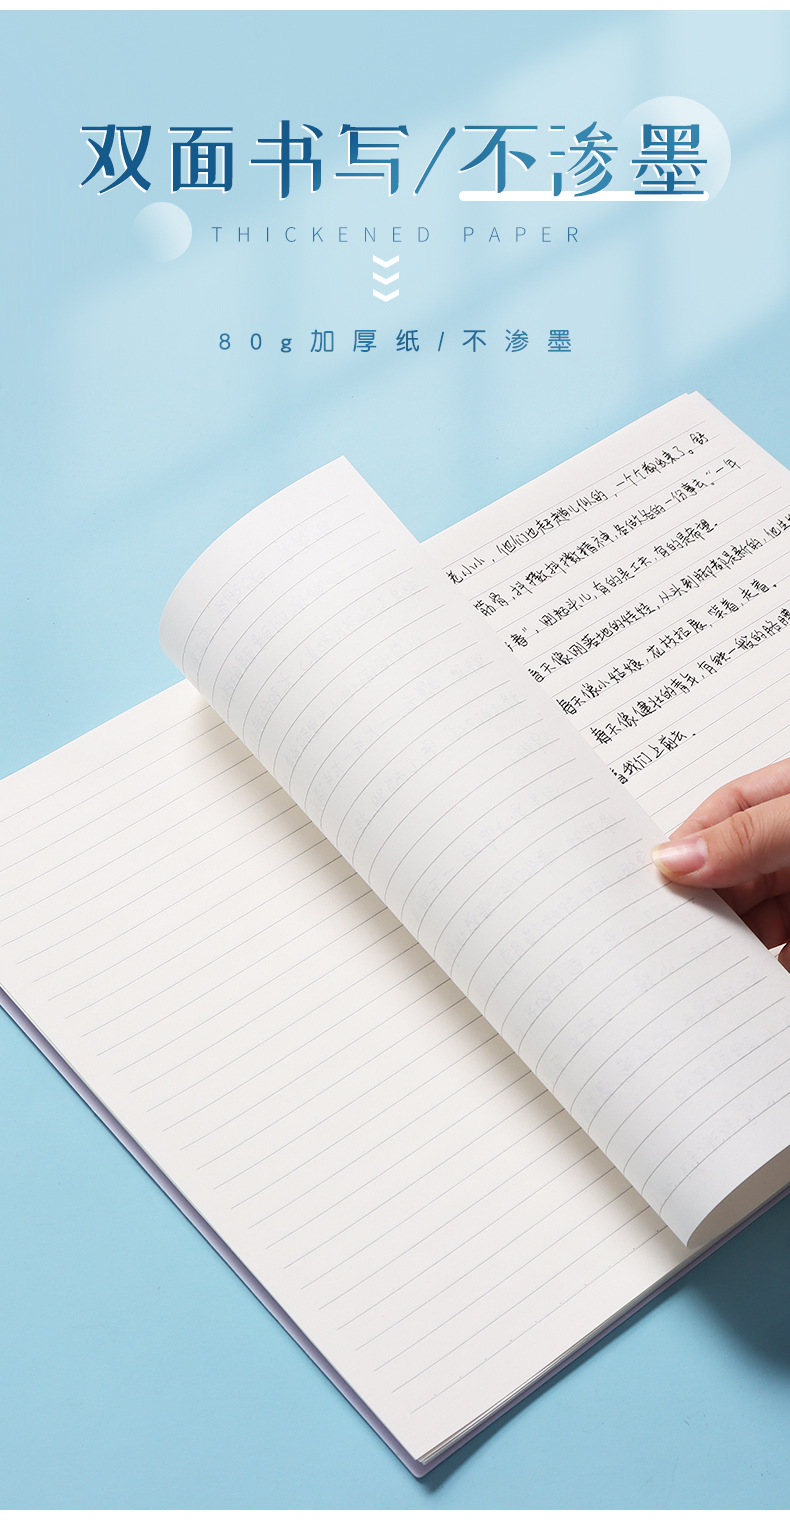 双面书写/不渗墨
THICKENED PAPER
80g加厚纸/不渗墨
小小,他们也赶趟儿似的,一个个都出来了。舒
筋骨,抖擞抖擞精神,各做各的一份事去。"一年
春",刚起头儿,有的是工夫,有的是希望。
春天像刚落地的娃娃,从头到脚都是新的,他生
春天像小姑娘,花枝招展,笑着,走着。
春天像健壮的青年,有铁一般的胳膊
着我们上前去。